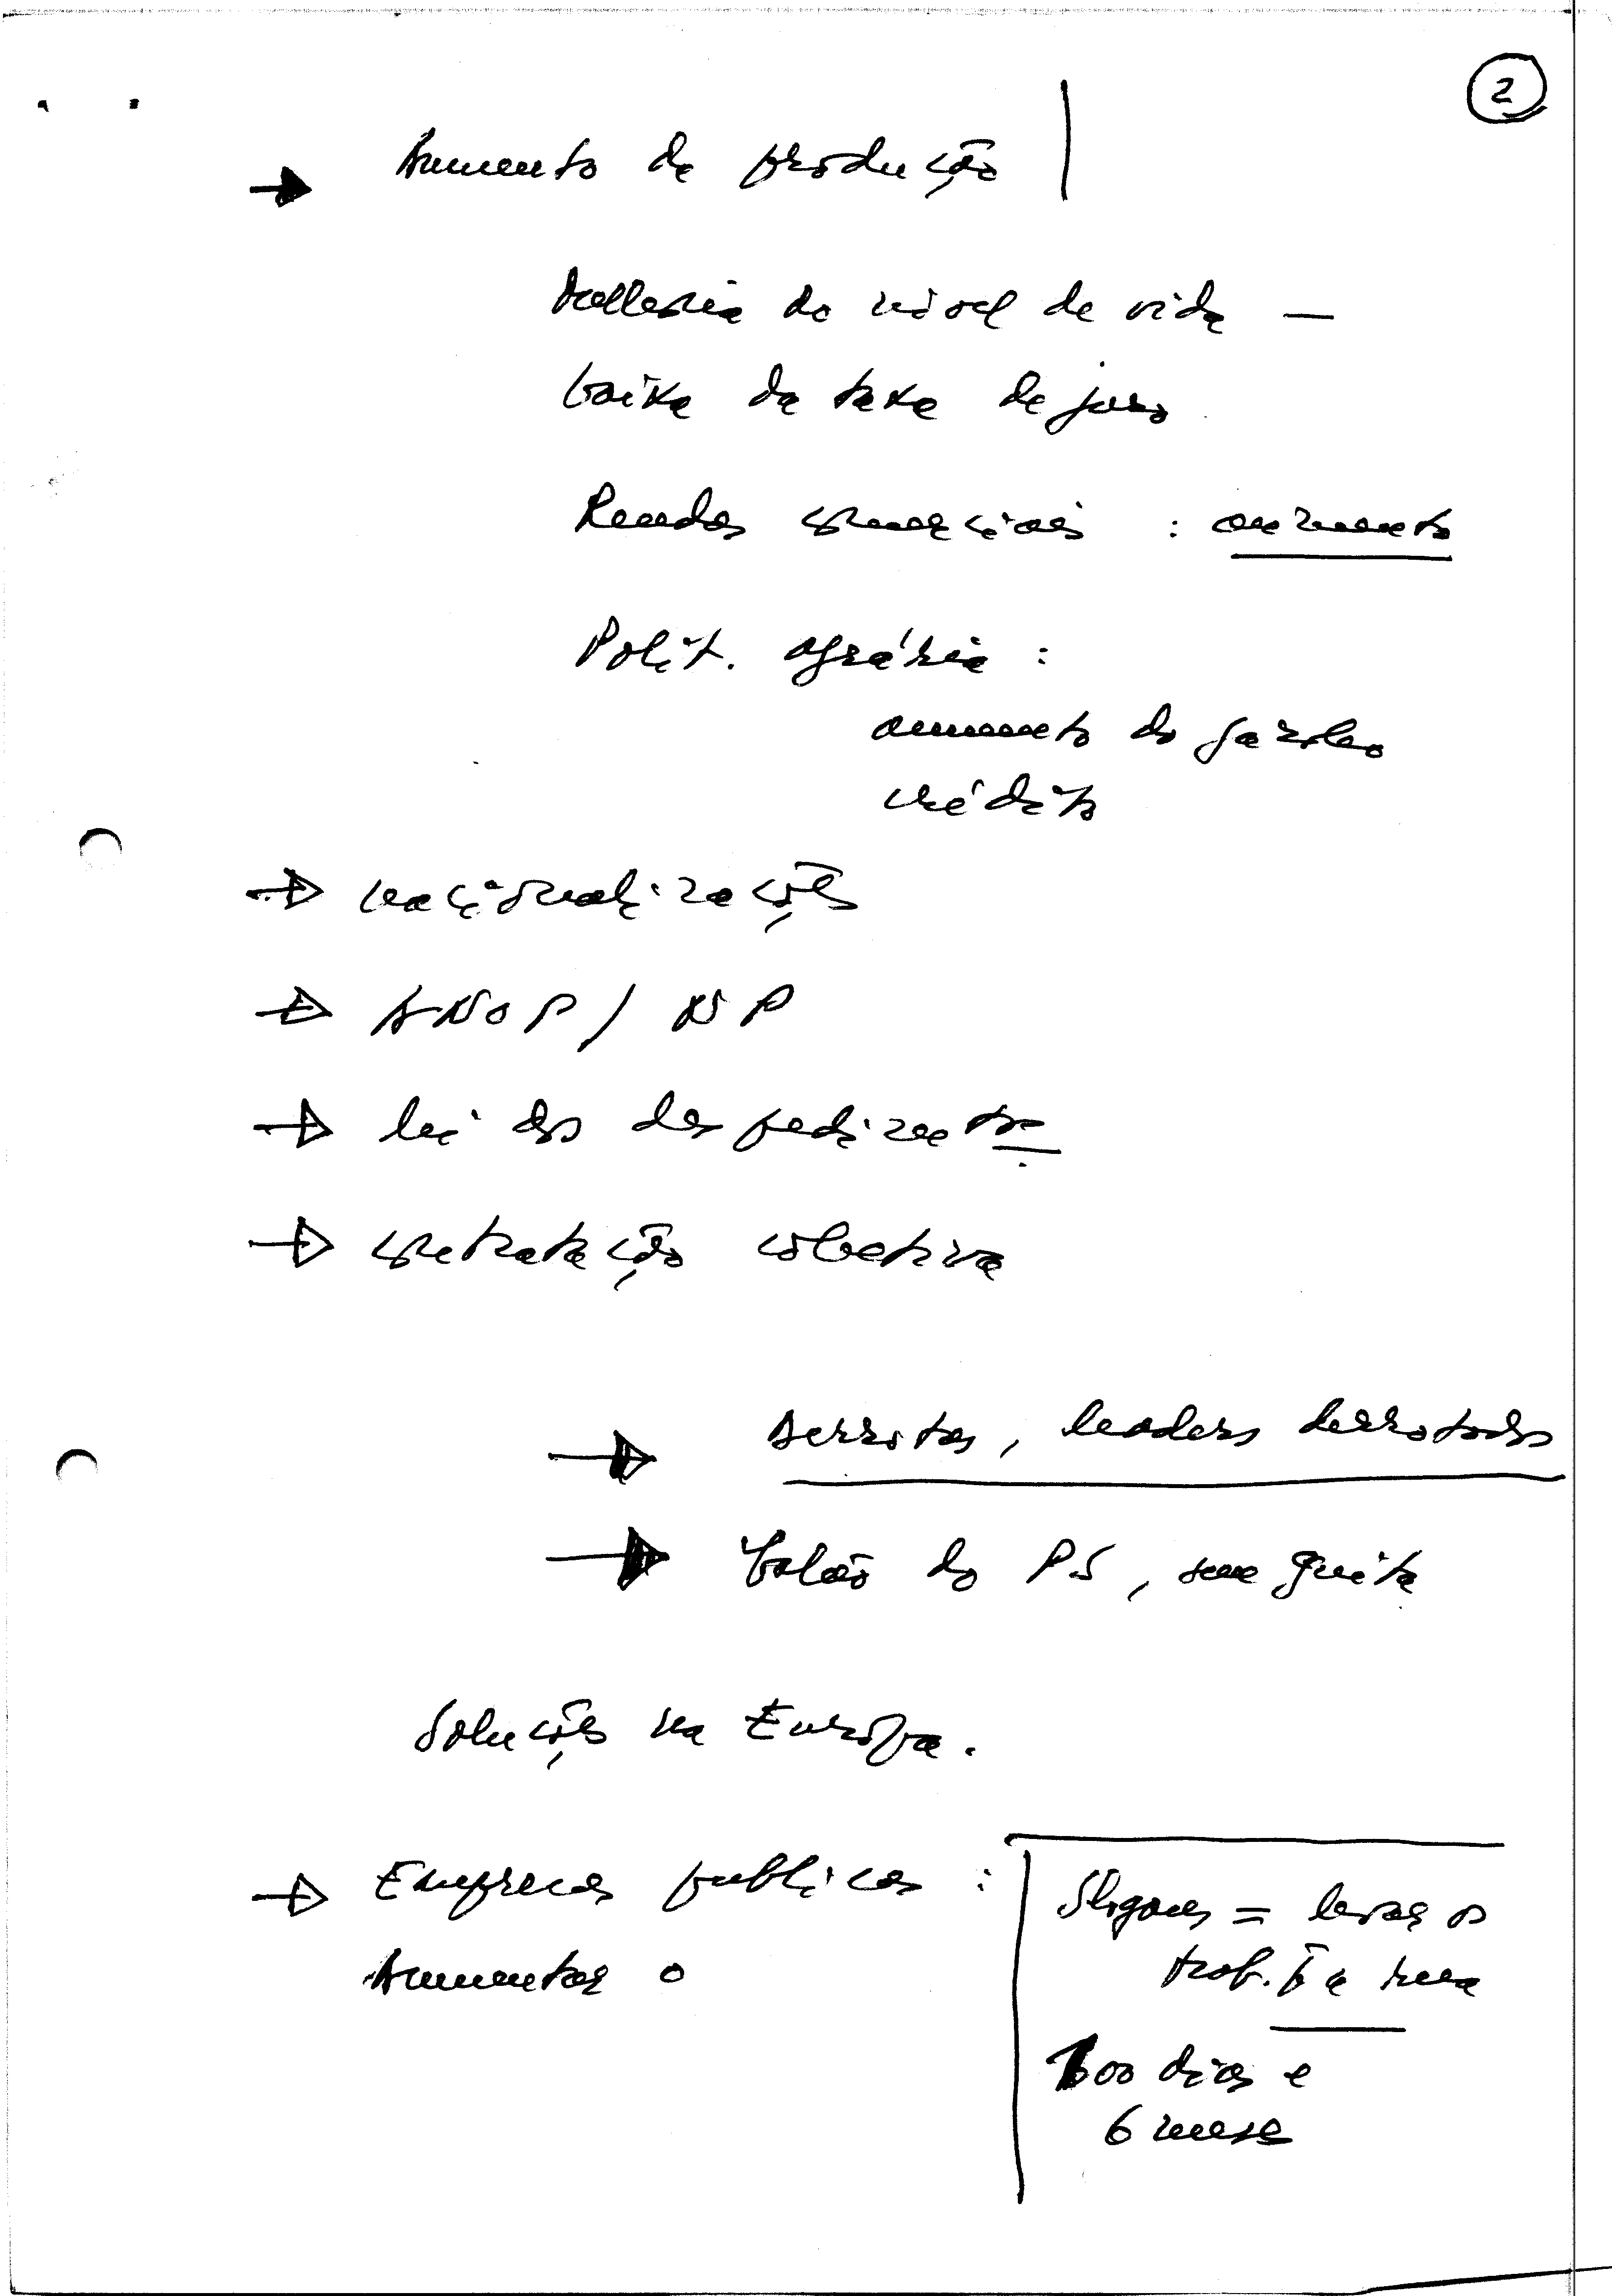 2
→ Aumento da produção
Melhoria do nível de vida —
baixa da taxa de juro
Rendas comerciais : aumento
Polít. agrária :
aumento do gasóleo
crédito
→ nacionalizações
→ ANOP / NP
→ lei dos despedimentos
→ contratação colectiva
→ Derrotas, leaders derrotados
→ balão do PS, sem guita
Soluções na Europa.
→ Empresas publicas :
Aumentar o
Slogans = levar os
trab. p a rua
100 dias e
6 meses